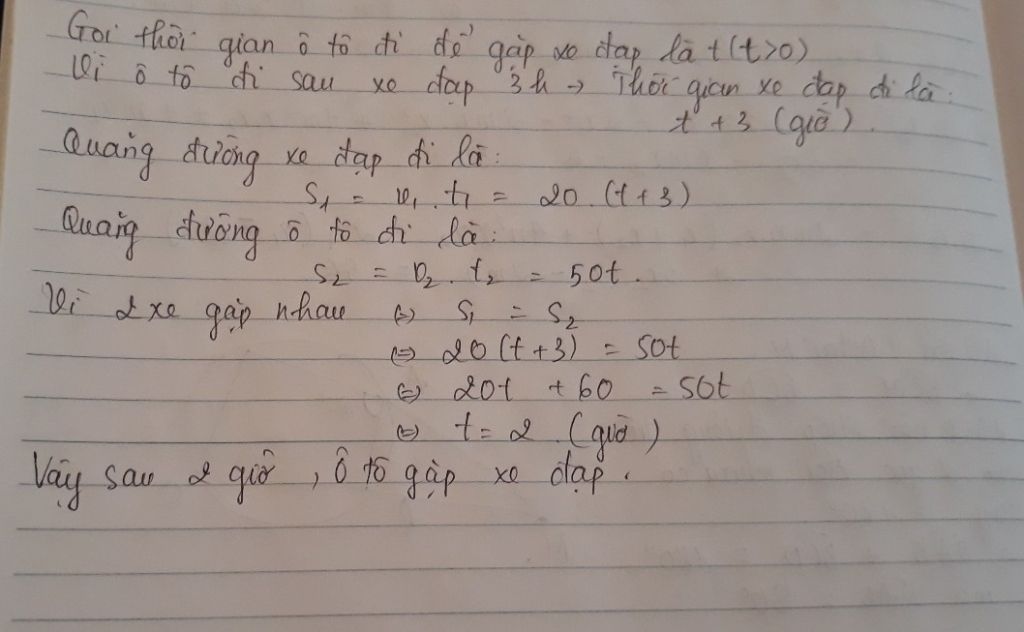 Gọi thời gian ô tô đi để gặp xe đạp là t (t>0)
Vì ô tô đi sau xe đạp 3h → Thời gian xe đạp đi là:
t + 3 (giờ).
Quãng đường xe đạp đi là:
S₁ = v₁ . t₁ = 20 . (t + 3)
Quãng đường ô tô đi là:
S₂ = v₂ . t₂ = 50t .
Vì 2 xe gặp nhau ⇔ S₁ = S₂
⇔ 20 (t + 3) = 50t
⇔ 20t + 60 = 50t
⇔ t = 2 (giờ)
Vậy sau 2 giờ , ô tô gặp xe đạp .